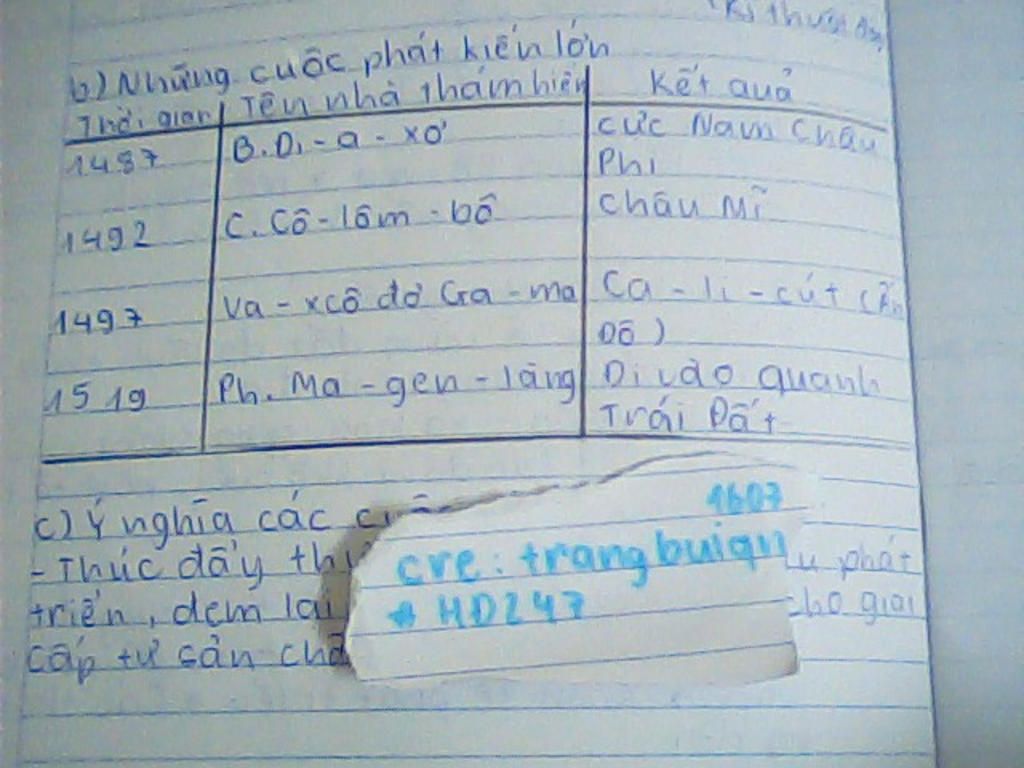 b) Những cuộc phát kiến lớn
Thời gian Tên nhà thám hiểm Kết quả
1487 B. Đi - a - xơ cực Nam Châu Phi
1492 C. Cô - lôm - bô Châu Mĩ
1497 Va - xcô đơ Ga - ma Ca - li - cút (Ấn Độ)
1519 Ph. Ma - gen - lăng Đi vào quanh Trái Đất
c) Ý nghĩa các
- Thúc đẩy phát
triển, đem lại cho giai
cấp tư sản châ
1607
cre: trangbuiqn
* HD247